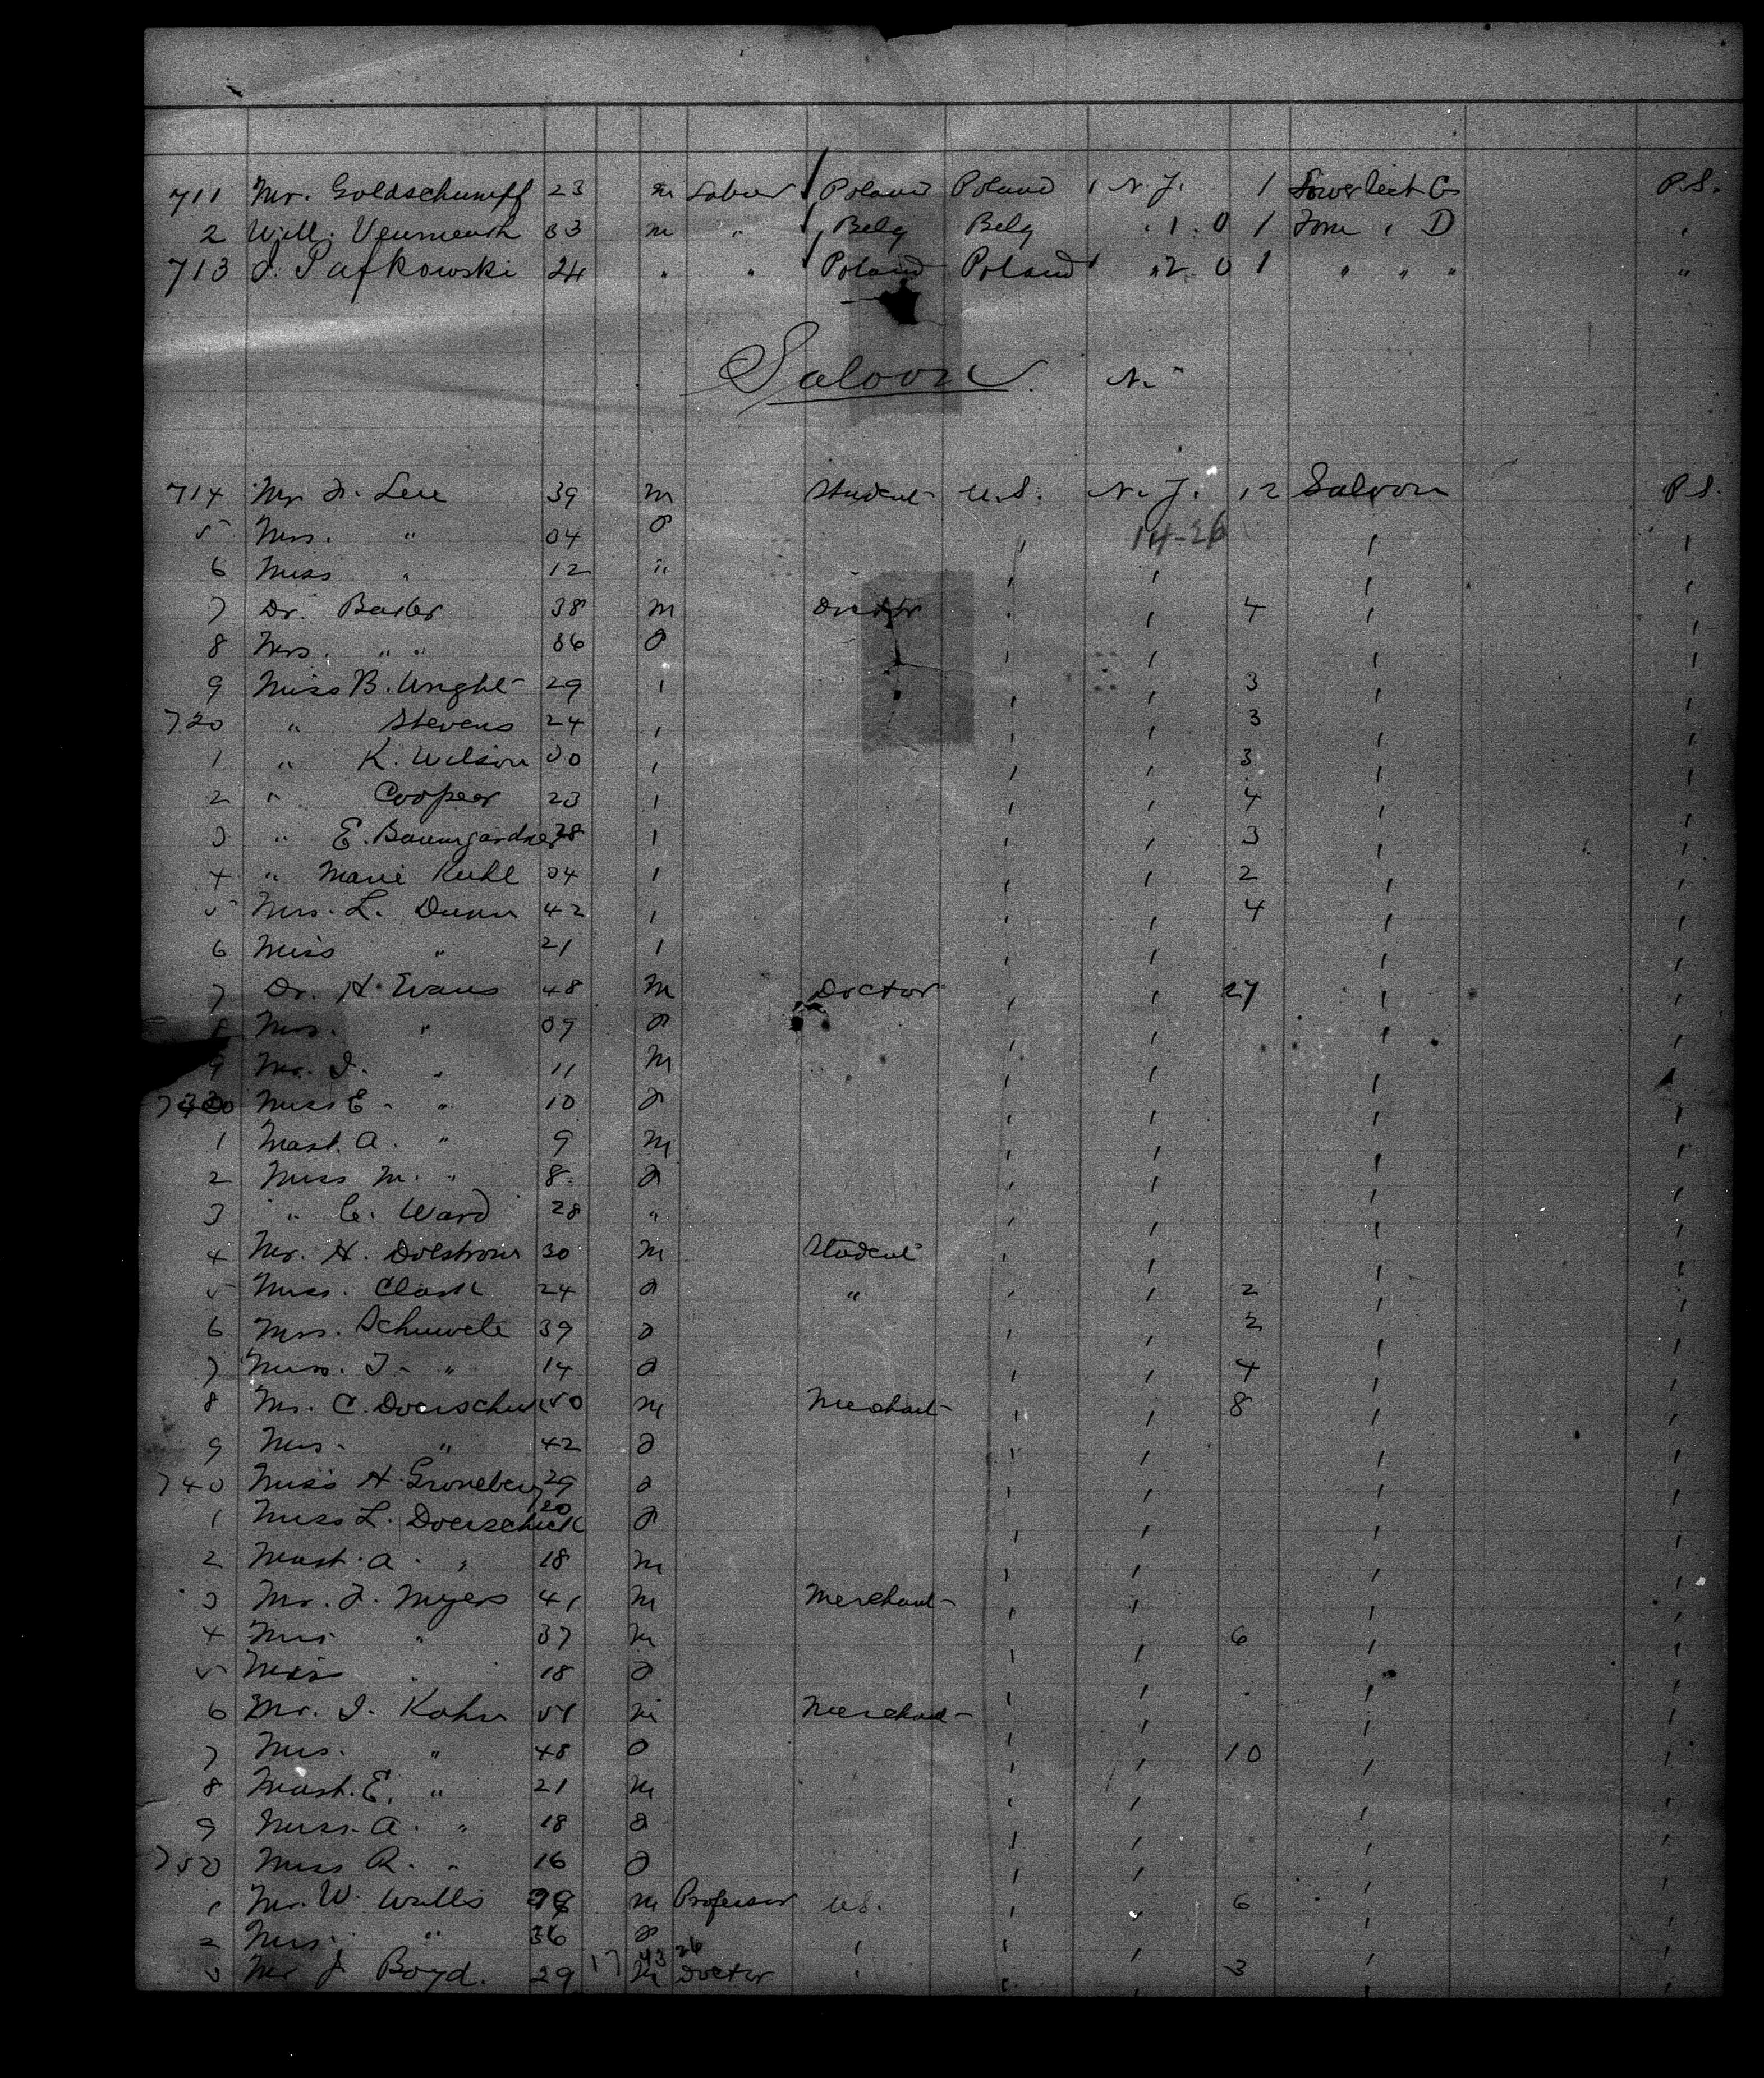 711 Mr. Goldschumpf 23 m Labor Poland Poland N.Y. 1 Lower Deck G P.S.
2 Will. 33 m " Belg Belg " 1 0 1 " D "
713 J. Pafkowski 24 " " Poland Poland " 2 0 1 " " " "
Saloon N.
714 Mr. 39 m Student U.S. N.Y. 12 Saloon P.S.
5 Mrs. " 34 f " 14-26 " "
6 Miss " 12 " " " " "
7 Dr. 38 m " " 4 " "
8 Mrs. " " 36 f " " " "
9 Miss B. Wright 29 " " " 3 " "
720 " Stevens 24 " " " 3 " "
1 " K. Wilson 30 " " " 3 " "
2 " Cooper 23 " " " 4 " "
3 " E. Baumgardner 28 " " " 3 " "
4 " Marie Kuhl 34 " " " 2 " "
5 Mrs. L. Dunn 42 " " " 4 " "
6 Miss " 21 " " " " "
7 Dr. H. Evans 48 m Doctor " " 27 " "
8 Mrs. " 39 f " " " "
9 Mr. J. " 11 m " " " "
730 Miss E. " 10 f " " " "
1 Mast. A. " 9 m " " " "
2 Miss M. " 8 f " " " "
3 " C. Ward 28 " " " " "
4 Mr. H. Dolstrom 30 m Student " " " "
5 Miss. Clark 24 f " " " 2 " "
6 Mrs. 39 f " " 2 " "
7 Miss. " 14 f " " 4 " "
8 Mr. C. Doerschuck 50 m Merchant " " 8 " "
9 Mrs. " 42 f " " " "
740 Miss H. Groneberg 29 f " " " "
1 Miss L. Doerschuck 20 f " " " "
2 Mast. A. " 18 m " " " "
3 Mr. J. Myers 41 m Merchant " " " "
4 Mrs " 37 m " " 6 " "
5 Miss " 18 f " " " "
6 Mr. J. Kahn 51 m Merchant " " " "
7 Mrs. " 48 f " " 10 " "
8 Mast. E. " 21 m " " " "
9 Miss. A. " 18 f " " " "
750 Miss R. " 16 f " " " "
1 Mr. W. Wallis m Professor U.S. " " 6 " "
2 Mrs. " 36 f " " " " "
3 Mr J. Boyd. 29 17 43 m 26 Doctor " " " 3 " "